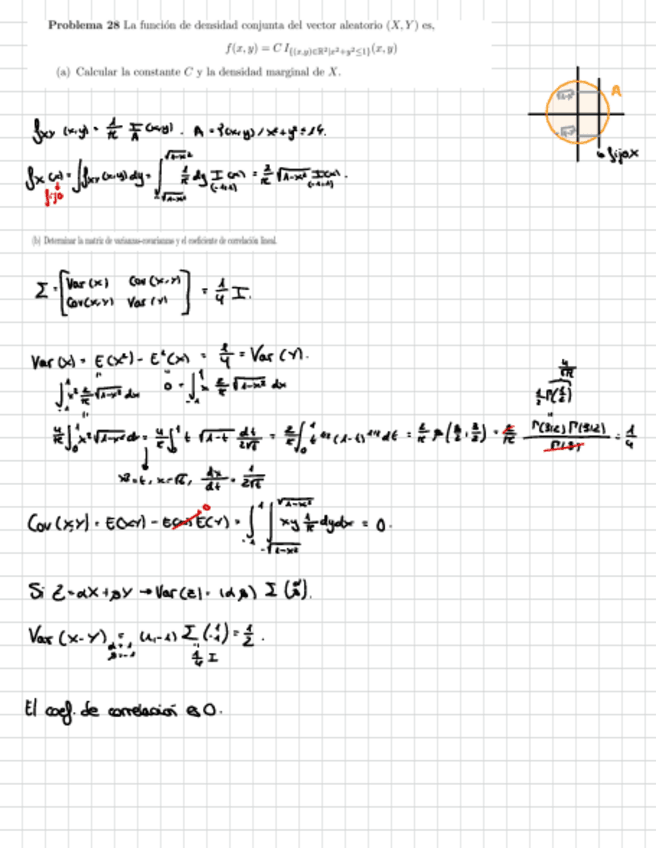 Problema 28 La función de densidad conjunta del vector aleatorio (X, Y) es,
f(x, y) = C I_{{(x,y)∈ℝ²|x²+y²≤1}}(x, y)
(a) Calcular la constante C y la densidad marginal de X.
A
f_{XY}(x,y) = 1/π I_A(x,y). A = {(x,y) / x²+y² ≤ 1}.
fija x
f_X(x) = ∫ f_{XY}(x,y) dy = ∫_{-√(1-x²)}^{√(1-x²)} 1/π dy I_{(-1,1)}(x) = 2/π √(1-x²) I_{(-1,1)}(x).
fijo
(b) Determinar la matriz de varianzas-covarianzas y el coeficiente de correlación lineal.
Σ = [Var(X) Cov(X,Y)
Cov(X,Y) Var(Y)] = 1/4 I.
Var(X) = E(X²) - E²(X) = 1/4 = Var(Y).
∫_{-1}^{1} x² 2/π √(1-x²) dx 0 = ∫_{-1}^{1} x 2/π √(1-x²) dx
4/π ∫_0^1 x² √(1-x²) dx = 4/π ∫_0^1 t √(1-t) dt/(2√t) = 2/π ∫_0^1 t^{1/2} (1-t)^{1/2} dt = 2/π β(3/2, 3/2) = 2/π Γ(3/2)Γ(3/2)/Γ(3) = 1/4
x² = t, x = √t, dx/dt = 1/(2√t)
Cov(X,Y) = E(XY) - E(X)E(Y) = ∫_{-1}^{1} ∫_{-√(1-x²)}^{√(1-x²)} xy 1/π dy dx = 0.
Si Z = αX + βY → Var(Z) = (α, β) Σ (α β).
Var(X-Y) = (1,-1) Σ (1 -1) = 1/2.
α=1
β=-1
1/4 I
El coef. de correlación es 0.